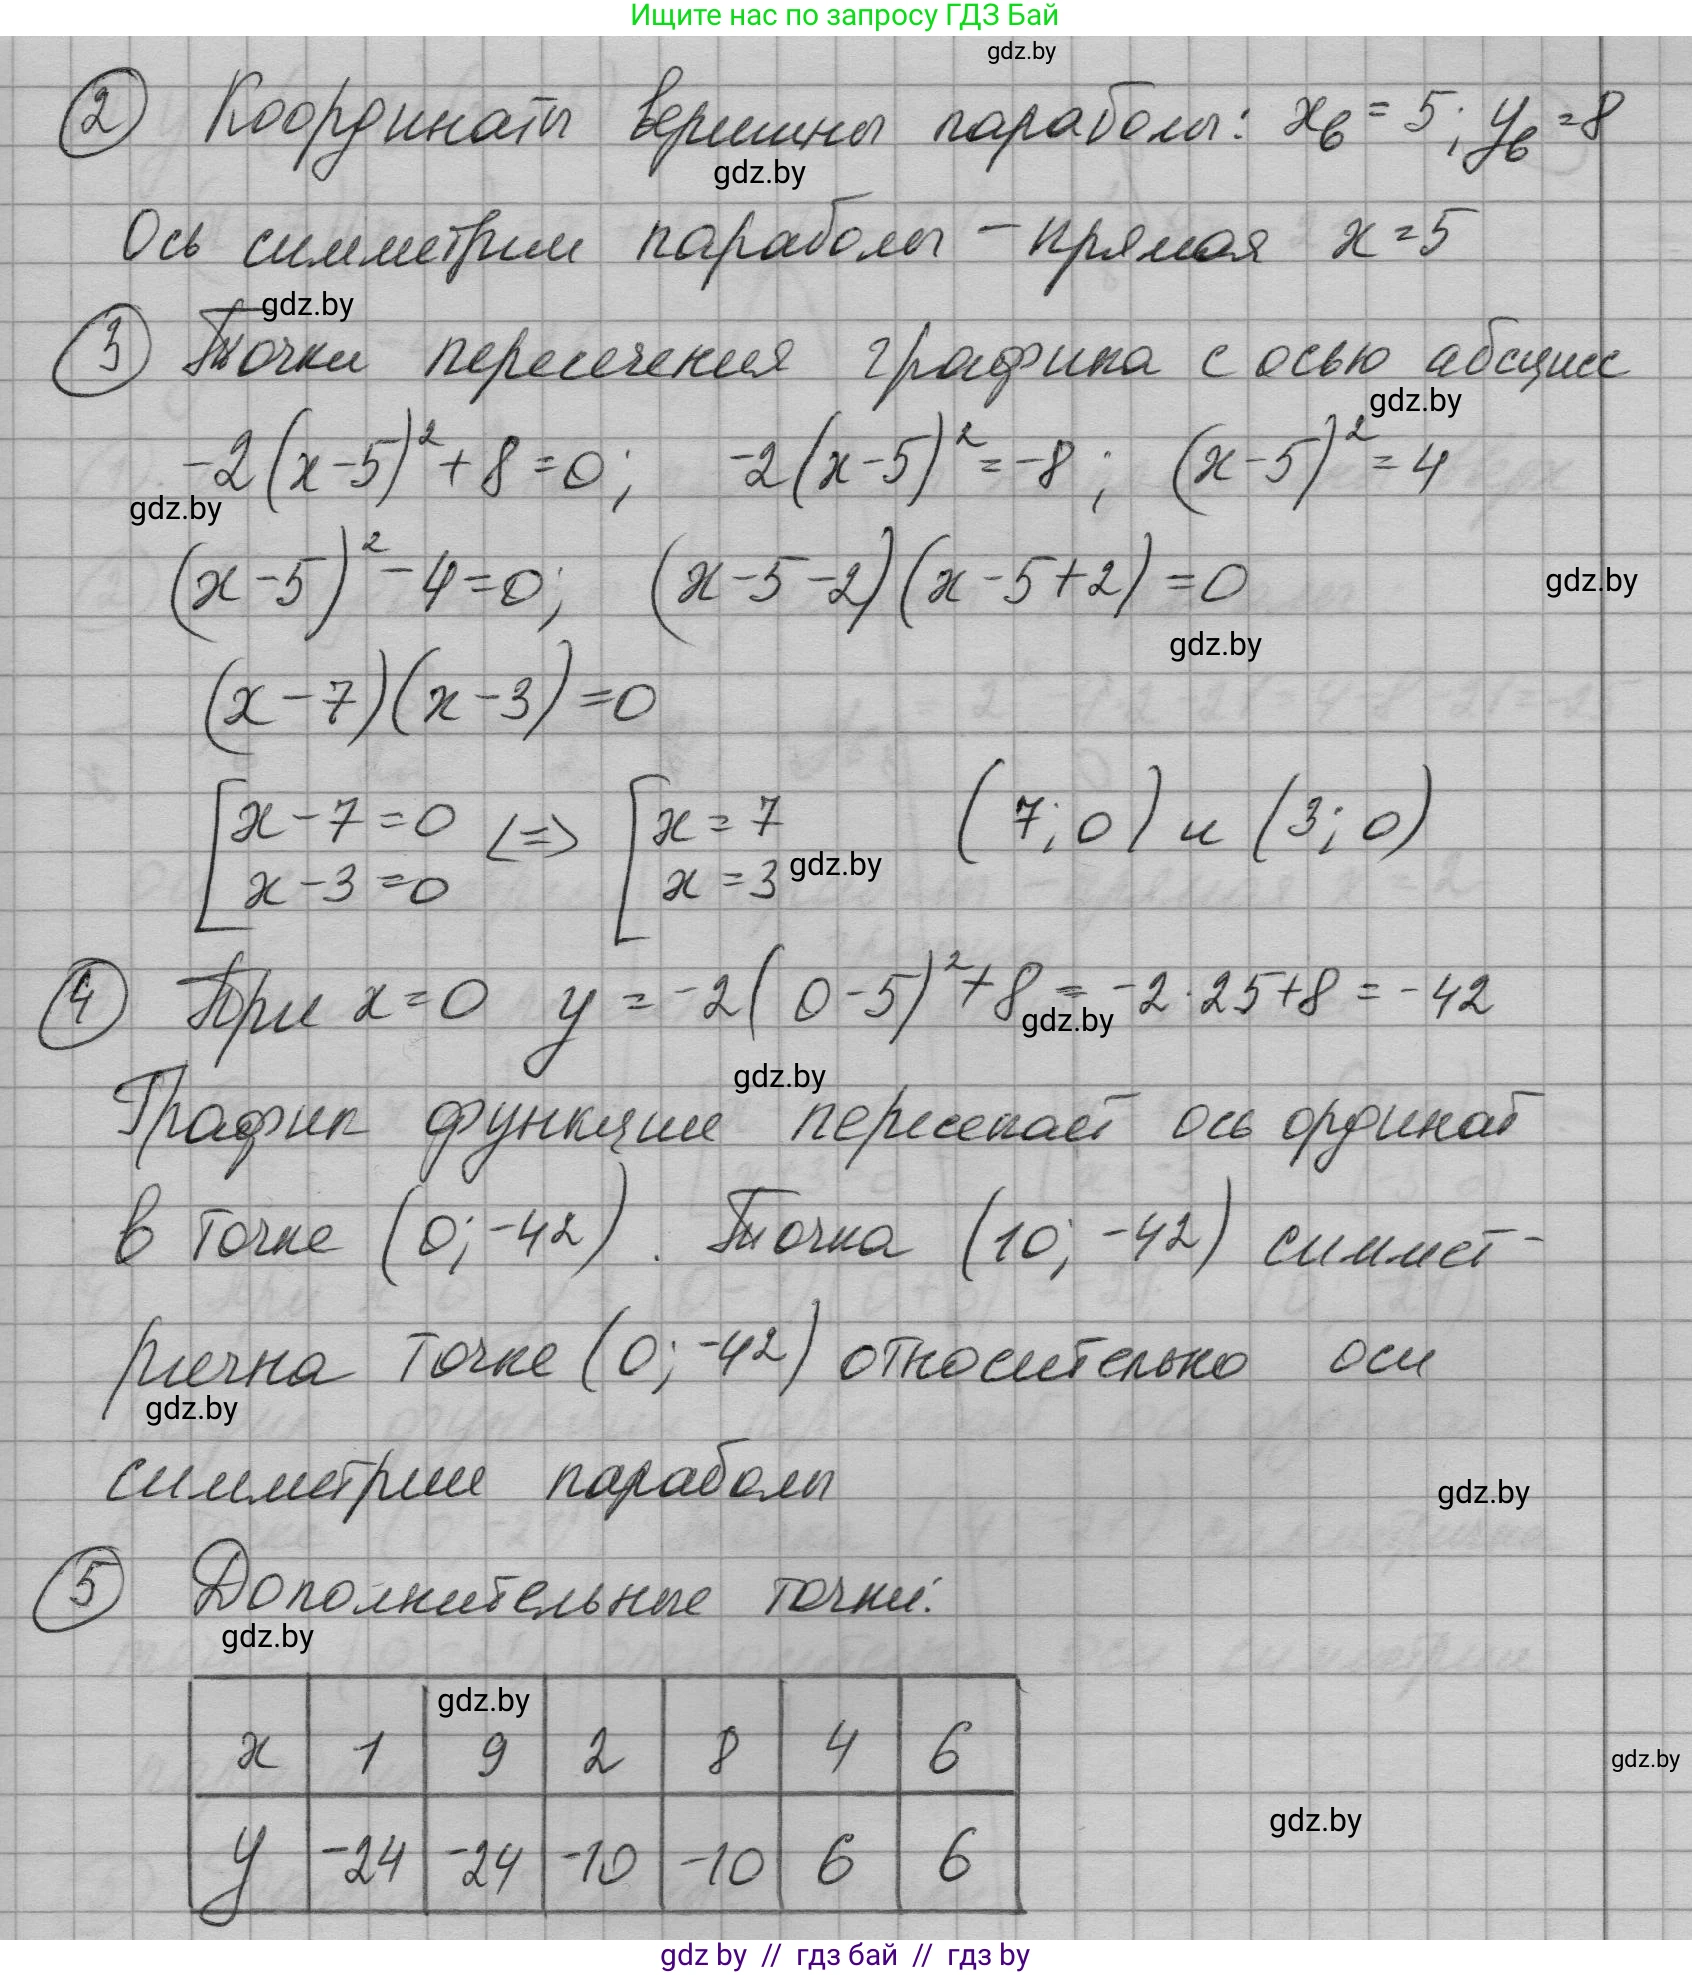 Ищите нас по запросу ГДЗ Бай
gdz.by
② Координаты вершины параболы: xв = 5; yв = 8
gdz.by
Ось симметрии параболы – прямая x = 5
gdz.by
③ Точки пересечения графика с осью абсцисс
gdz.by
-2(x-5)²+8=0; -2(x-5)²=-8; (x-5)²=4
gdz.by
(x-5)²-4=0; (x-5-2)(x-5+2)=0
gdz.by
gdz.by
(x-7)(x-3)=0
[x-7=0 <=> [x=7 (7;0) и (3;0)
x-3=0 x=3
gdz.by
④ При x=0 y=-2(0-5)²+8=-2·25+8=-42
gdz.by
gdz.by
График функции пересекает ось ординат
в точке (0;-42). Точка (10;-42) симмет-
рична точке (0;-42) относительно оси
gdz.by
симметрии параболы
gdz.by
⑤ Дополнительные точки:
gdz.by
gdz.by
x 1 9 2 8 4 6
gdz.by
gdz.by
y -24 -24 -10 -10 6 6
gdz by // гдз бай // гдз by